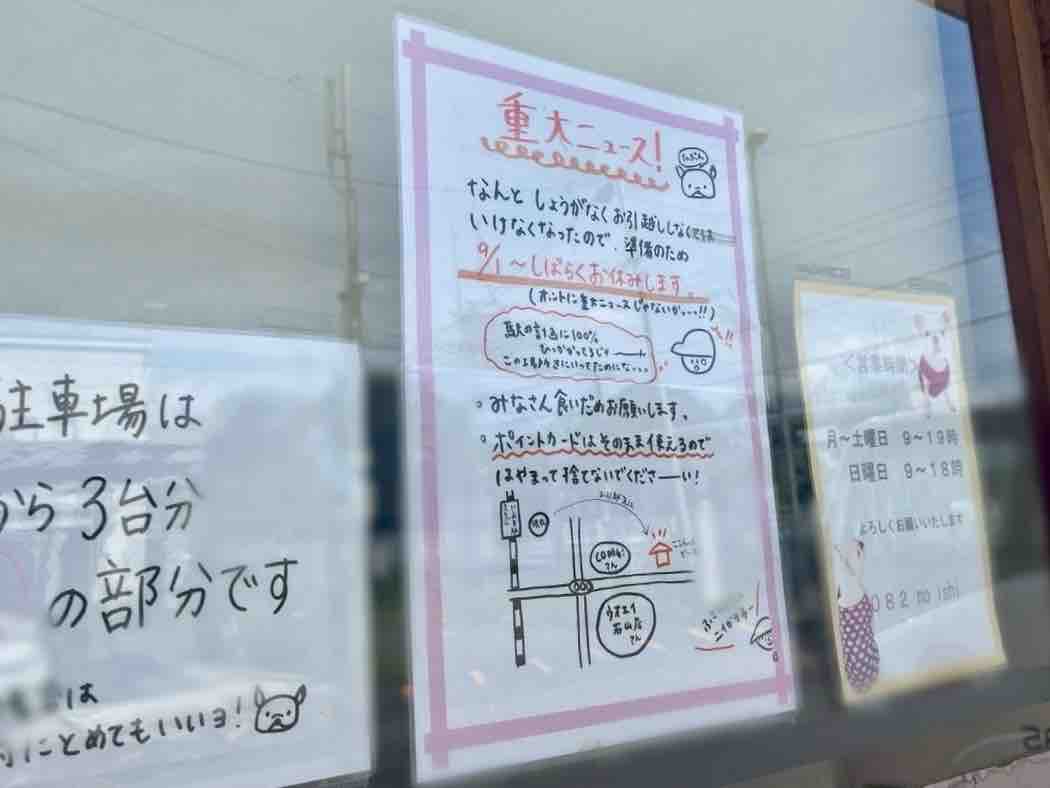 重大ニュース!
なんと しょうがなく お引越ししなく
いけなくなったので、準備のため
9/1〜しばらくお休みします。
(ホントに重大ニュースじゃないかっ…!!)
駅の計画に100%
ひっかかってるじゃ
みなさん食いだめお願いします。
ポイントカードはそのまま使えるので
はやまって捨てないでくださーい!
現在
さん
ウオエイ
石山店
さん
駐車場は
から3台分
の部分です
は
にとめてもいいヨ!
<営業時間>
月〜土曜日 9〜19時
日曜日 9〜18時
よろしくお願いいたします
082 no ishi